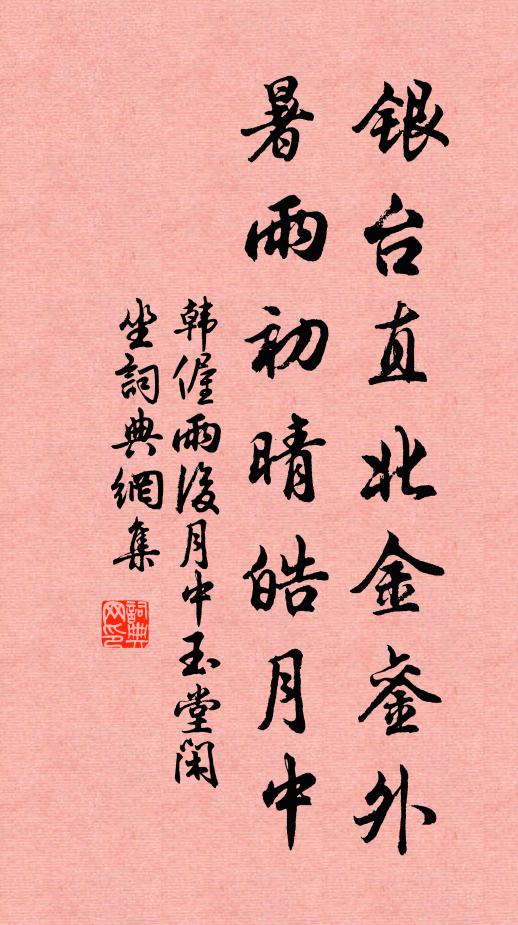 銀台直北金銮外
暑雨初晴皓月中
韩偓雨後月中玉堂閑
坐詞典網集
詞典网印